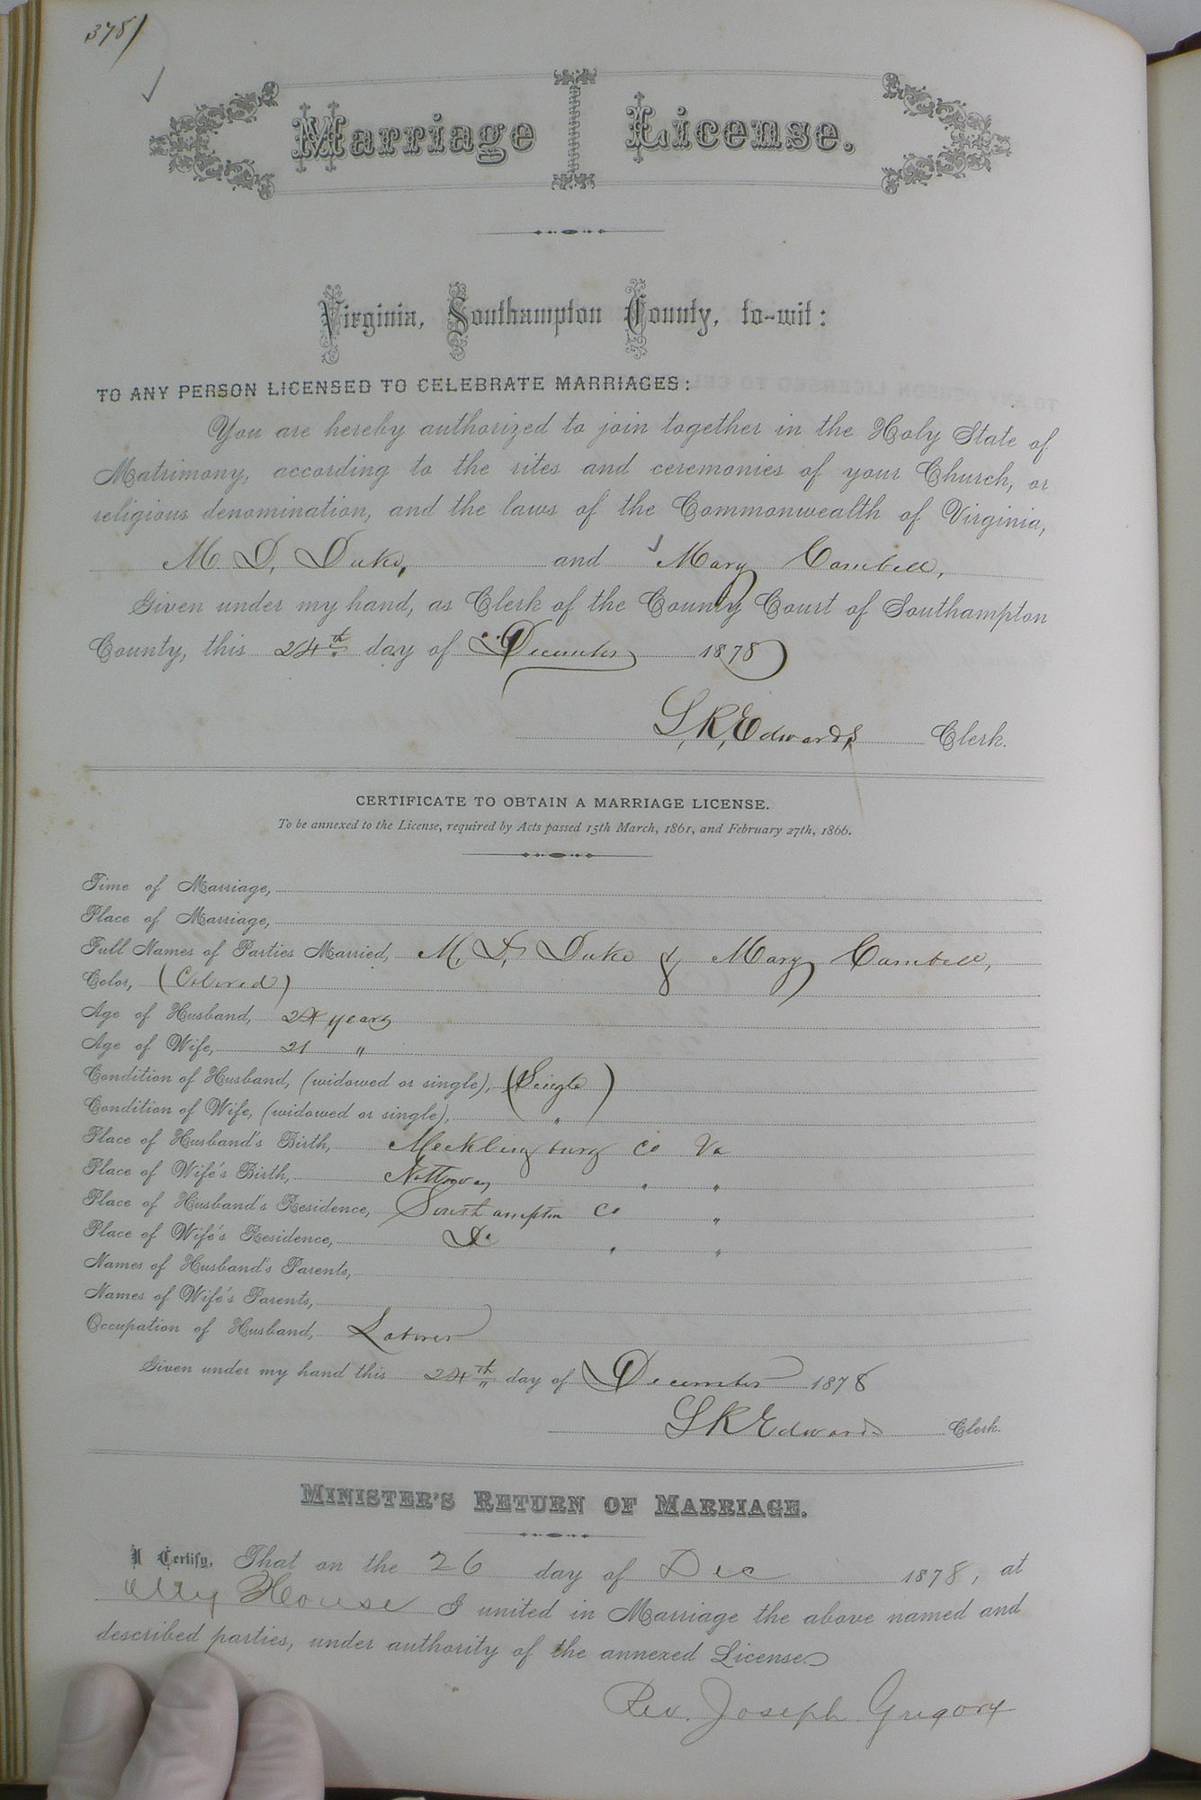 378
Marriage License.
Virginia, Southampton County, to-wit:
TO ANY PERSON LICENSED TO CELEBRATE MARRIAGES:
You are hereby authorized to join together in the Holy State of
Matrimony, according to the rites and ceremonies of your Church, or
religious denomination, and the laws of the Commonwealth of Virginia,
M. D. Duke, and Mary Cambell,
Given under my hand, as Clerk of the County Court of Southampton
County, this 24th day of December 1878
L. R. Edwards Clerk.
CERTIFICATE TO OBTAIN A MARRIAGE LICENSE.
To be annexed to the License, required by Acts passed 15th March, 1861, and February 27th, 1866.
Time of Marriage,
Place of Marriage,
Full Names of Parties Married, M. D. Duke & Mary Cambell,
Color, (Colored)
Age of Husband, 24 years
Age of Wife, 21 "
Condition of Husband, (widowed or single), (Single)
Condition of Wife, (widowed or single), "
Place of Husband's Birth, Mecklingburg Co Va
Place of Wife's Birth, Nottoway " "
Place of Husband's Residence, Southampton Co "
Place of Wife's Residence, Do " "
Names of Husband's Parents,
Names of Wife's Parents,
Occupation of Husband, Laborer
Given under my hand this 24th day of December 1878
L R Edwards Clerk.
MINISTER'S RETURN OF MARRIAGE.
I Certify, That on the 26 day of Dec 1878, at
My House I united in Marriage the above named and
described parties, under authority of the annexed License
Rev. Joseph Grigory